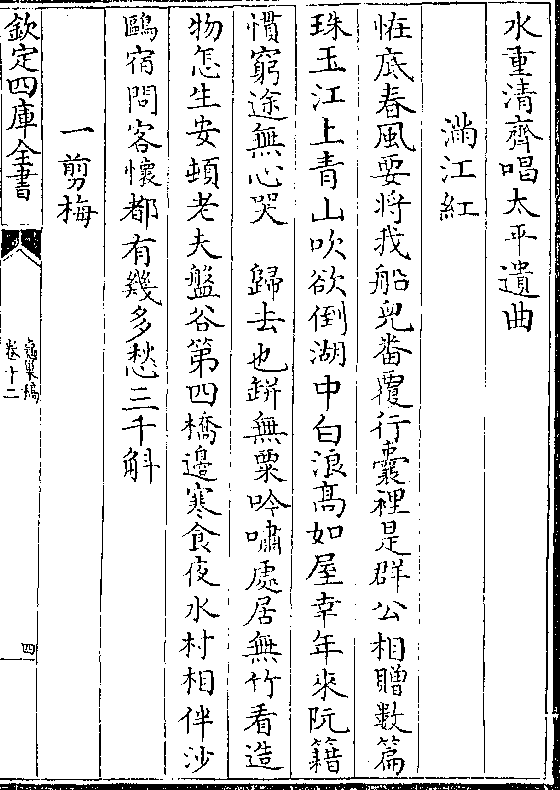 水重清齊唱太平遺曲
滿江紅
恠底春風要將我船兒畨覆行囊裡是群公相贈數篇
珠玉江上青山吹欲倒湖中白浪髙如屋幸年來阮籍
慣窮途無心哭　歸去也缾無粟吟嘯處居無竹看造
物怎生安頓老夫盤谷第四橋邉寒食夜水村相伴沙
鷗宿問客懐都有幾多愁三千斛
一剪梅
欽定四庫全書
龜巢稿
卷十二
四